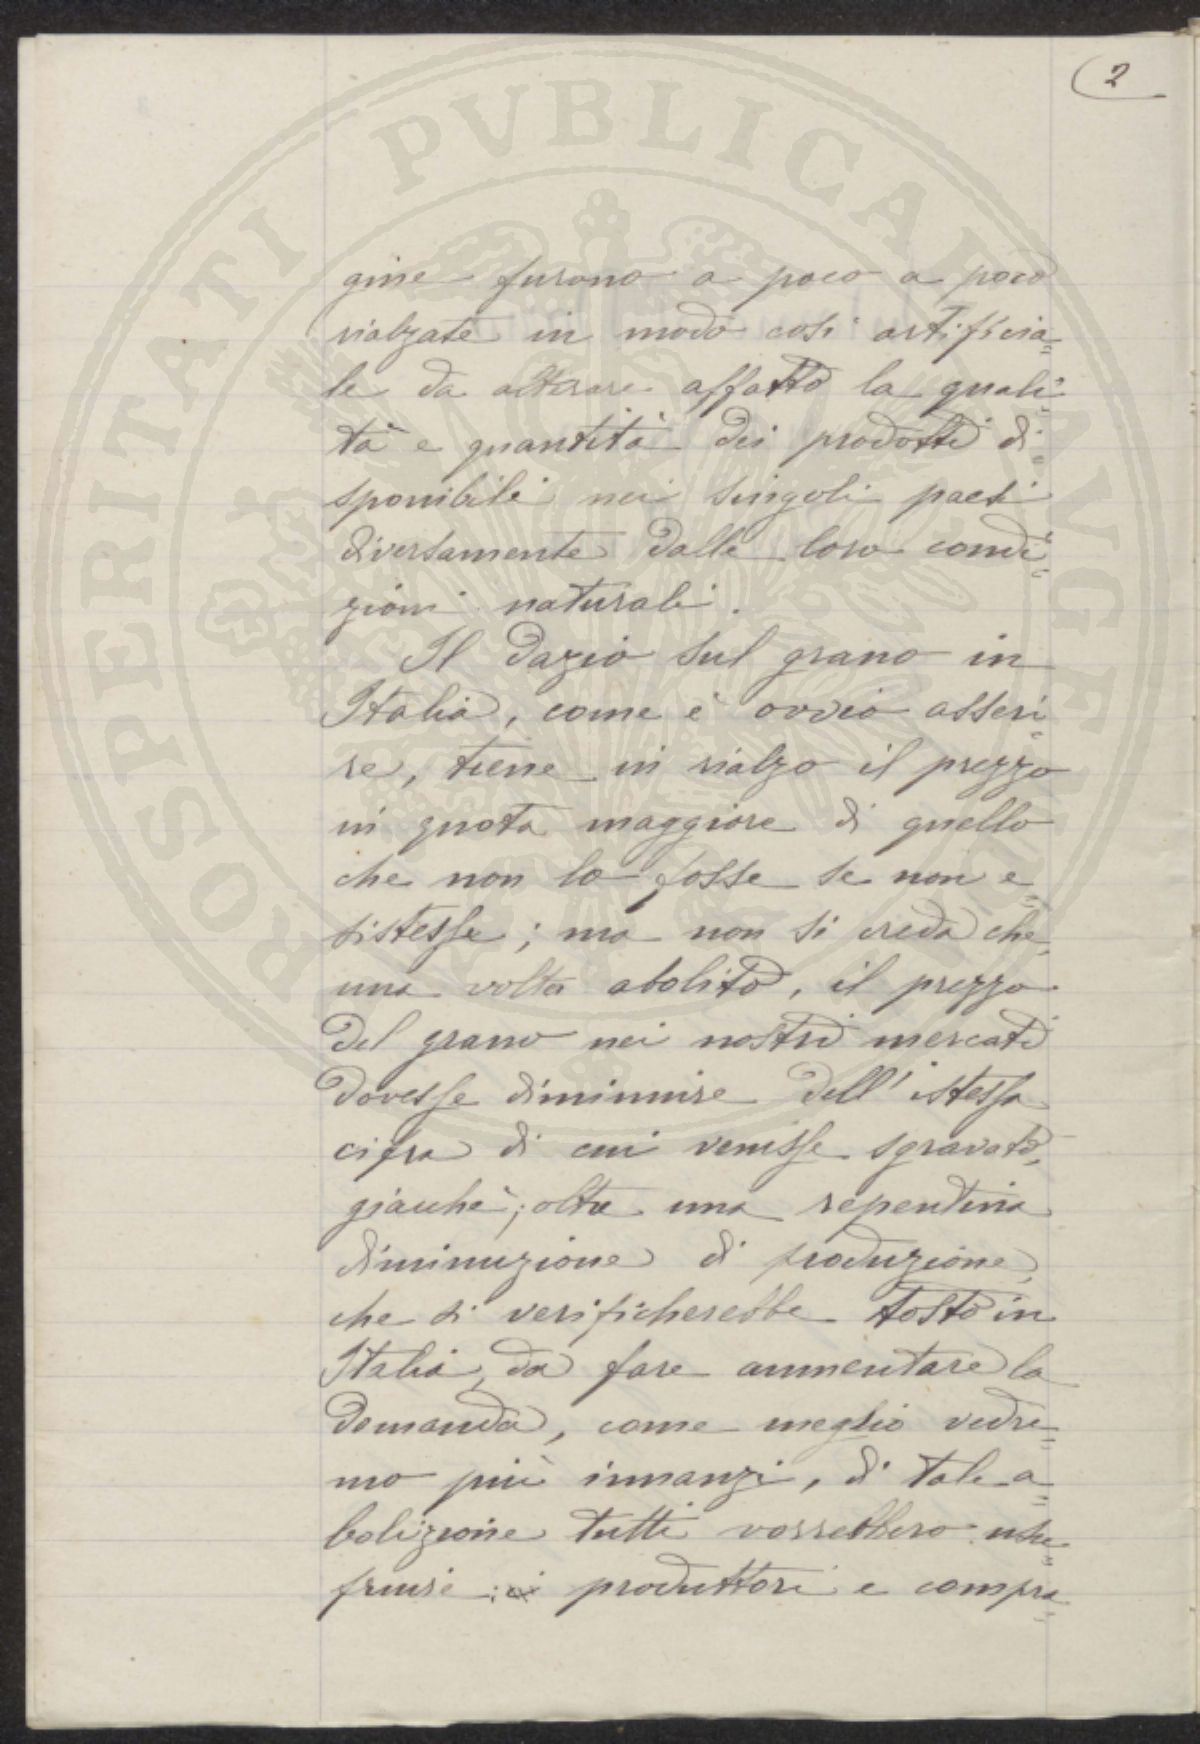 2
gine furono a poco a poco
rialzate in modo così artificia=
le da alterare affatto la quali=
tà e quantità dei prodotti di=
sponibili nei singoli paesi
diversamente dalle loro condi=
zioni naturali.
Il dazio sul grano in
Italia, come è ovvio asseri=
re, tiene in rialzo il prezzo
in quota maggiore di quello
che non lo fosse se non e=
sistesse; ma non si creda che,
una volta abolito, il prezzo
del grano nei nostri mercati
dovesse diminuire dell'istessa
cifra di cui venisse sgravato,
giacchè; oltre una repentina
diminuzione di produzione,
che si verificherebbe tosto in
Italia, da fare aumentare la
domanda, come meglio vedre=
mo più innanzi, di tale a=
bolizione tutti vorrebbero usu=
fruire: i produttori e compra=
PROSPERITATI PVBLICAE AVGENDAE